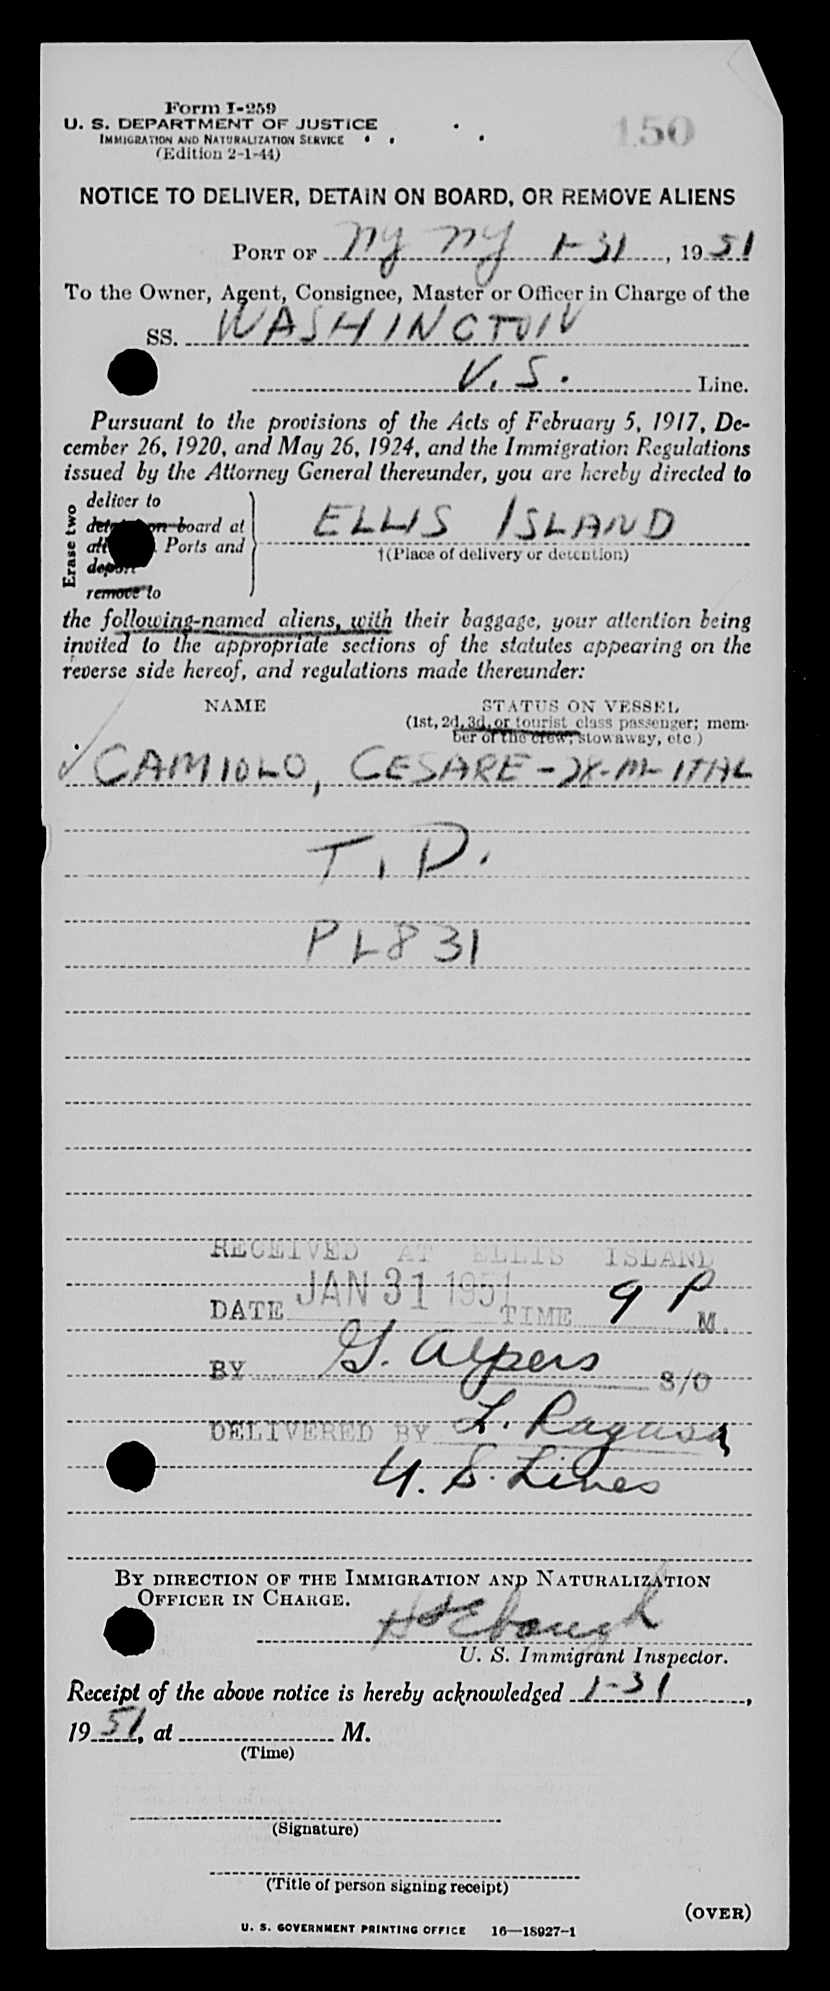 Form I-259
U. S. DEPARTMENT OF JUSTICE
IMMIGRATION AND NATURALIZATION SERVICE
(Edition 2-1-44)
150
NOTICE TO DELIVER, DETAIN ON BOARD, OR REMOVE ALIENS
PORT OF NY NY 1-31, 1951
To the Owner, Agent, Consignee, Master or Officer in Charge of the
SS. WASHINGTON
U.S. Line.
Pursuant to the provisions of the Acts of February 5, 1917, De-
cember 26, 1920, and May 26, 1924, and the Immigration Regulations
issued by the Attorney General thereunder, you are hereby directed to
Erase two
deliver to
on board at
Ports and
deport
remove to
ELLIS ISLAND
†(Place of delivery or detention)
the following-named aliens, with their baggage, your attention being
invited to the appropriate sections of the statutes appearing on the
reverse side hereof, and regulations made thereunder:
NAME STATUS ON VESSEL
(1st, 2d, 3d, or tourist class passenger; mem-
ber of the crew; stowaway, etc.)
✓ CAMIOLO, CESARE - 28-M- ITAL
T. D.
PL831
RECEIVED AT ELLIS ISLAND
DATE JAN 31 1951 TIME 9 P M.
BY G. Alpers S/O
DELIVERED BY L. Ragusa
U. S. Lines
BY DIRECTION OF THE IMMIGRATION AND NATURALIZATION
OFFICER IN CHARGE.
U. S. Immigrant Inspector.
Receipt of the above notice is hereby acknowledged 1-31,
1951, at M.
(Time)
(Signature)
(Title of person signing receipt)
(OVER)
U. S. GOVERNMENT PRINTING OFFICE 16—18927-1